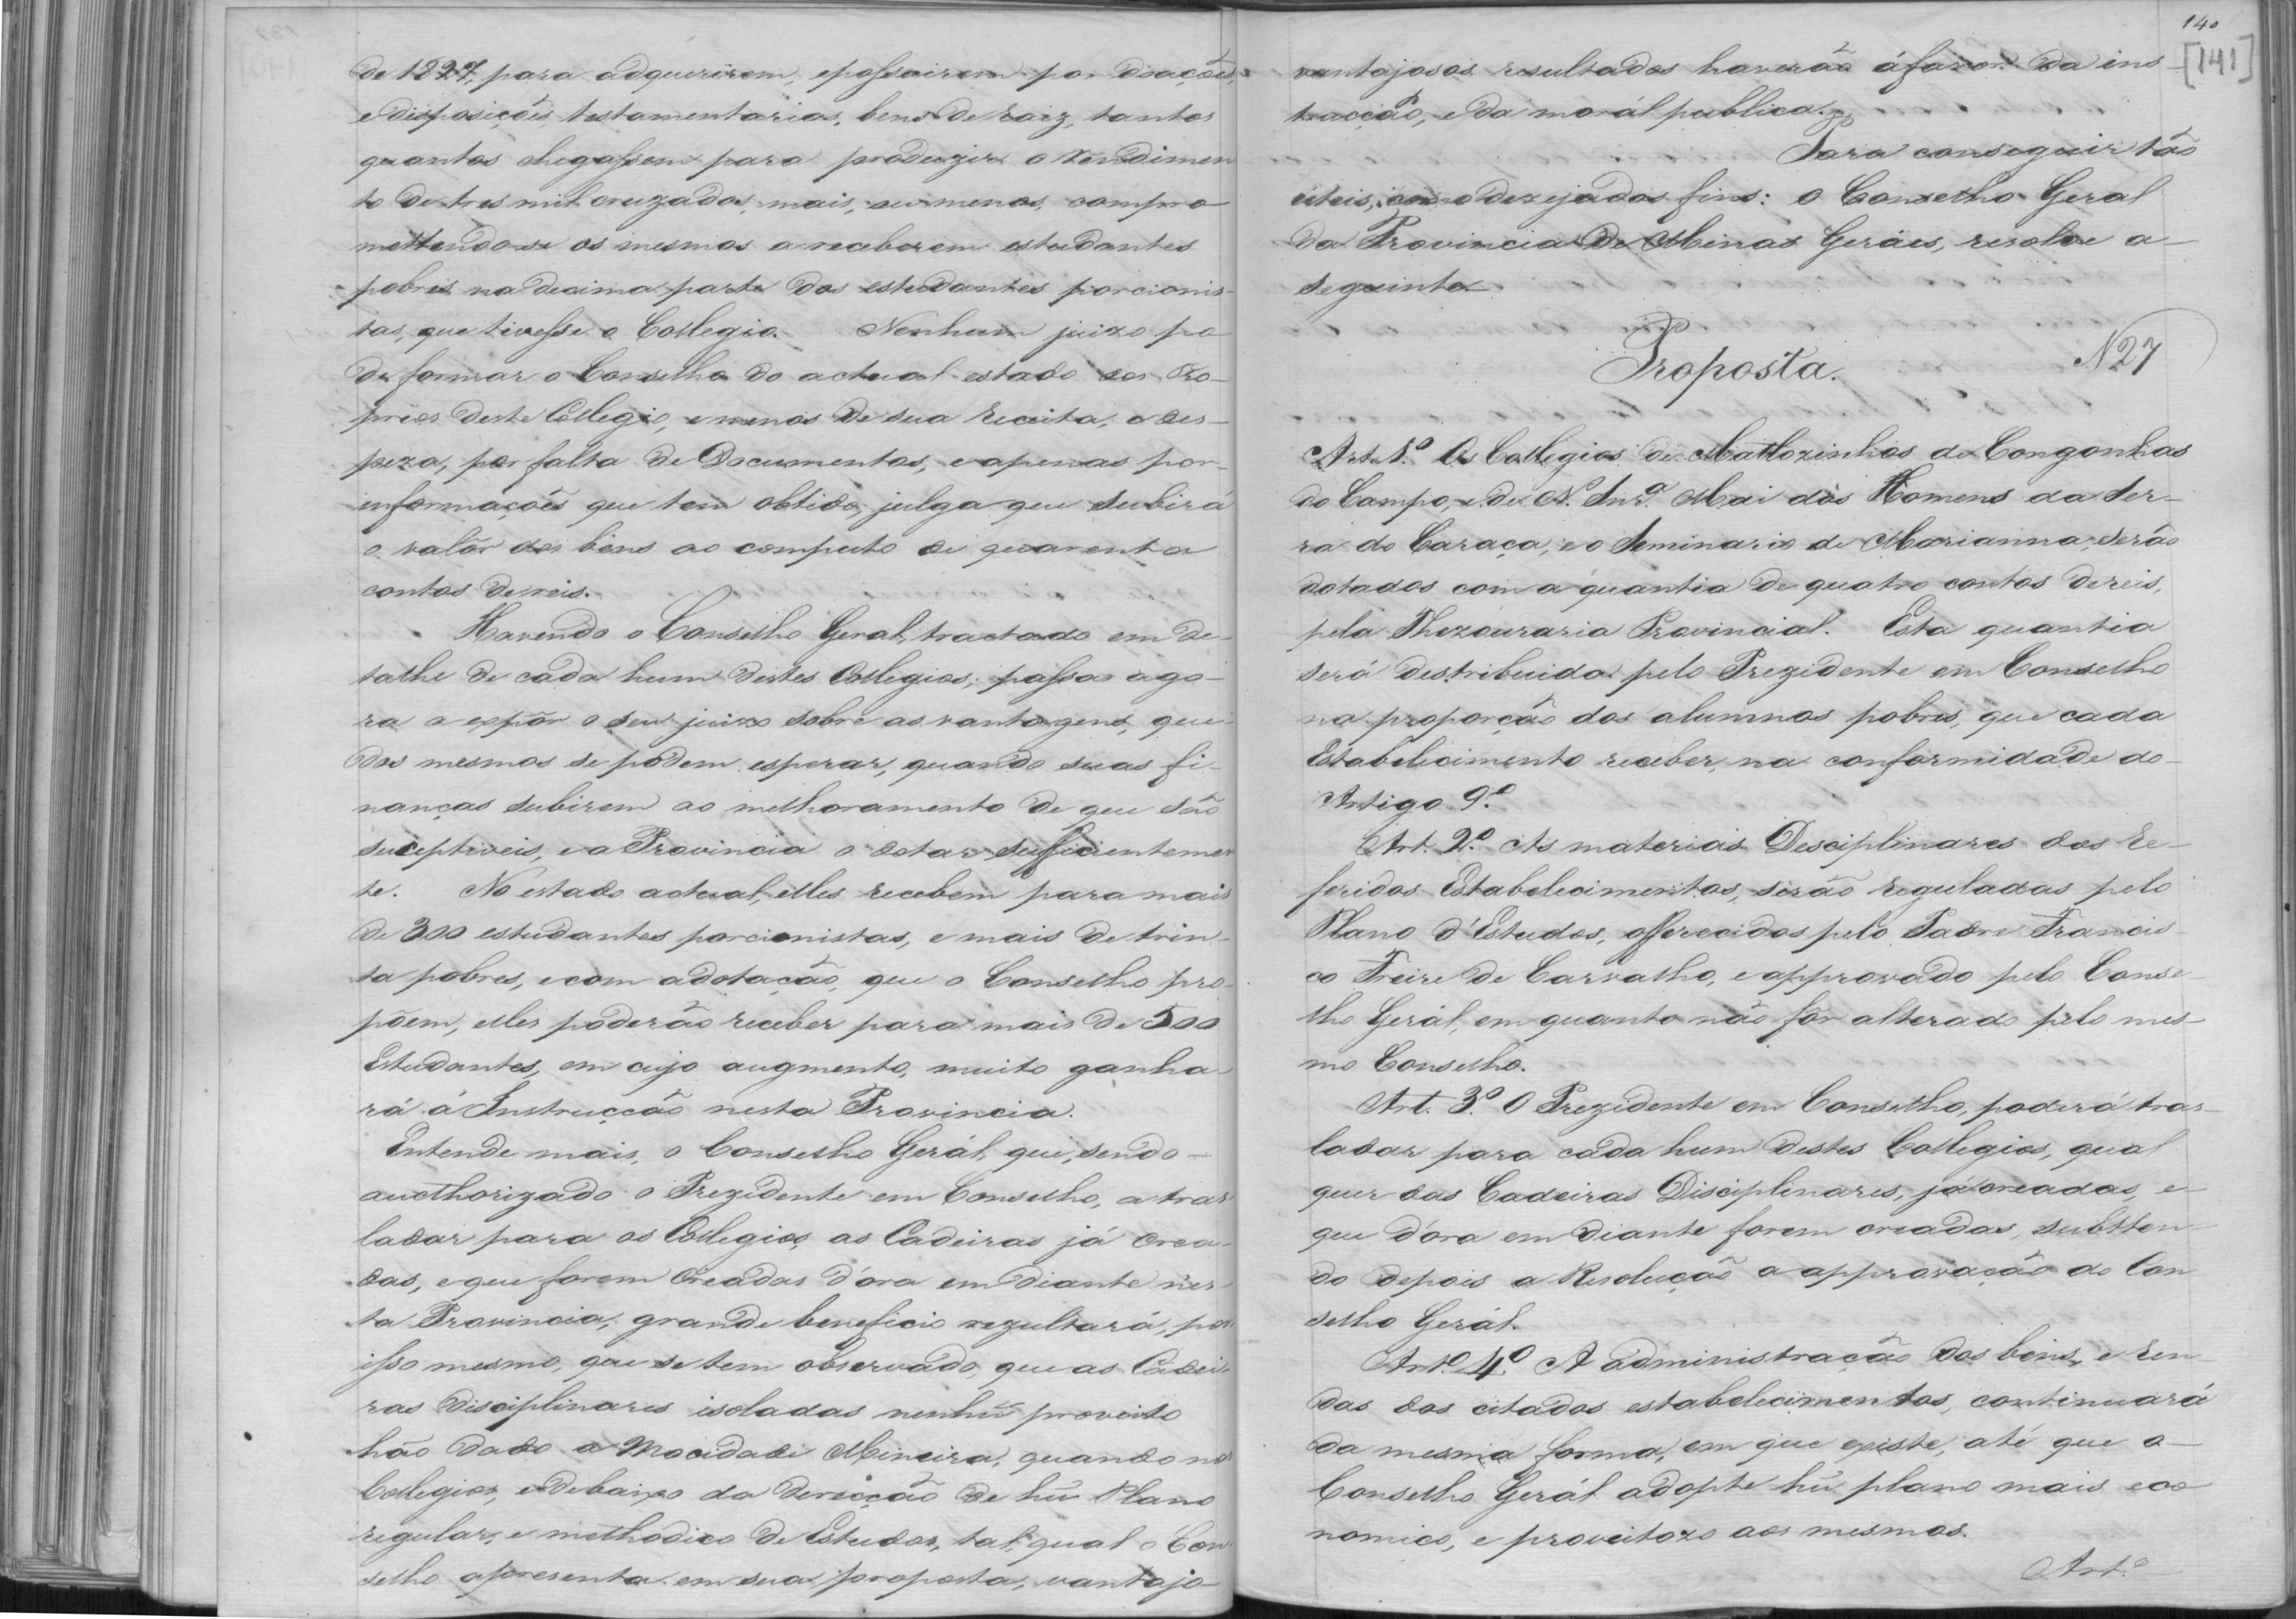 de 1827, para adquirirem, epossuirem por doações,
e disposições testamentarias, bens de raiz, tantos
quantos chegassem para produzir o rendimen
to de tres mil cruzados, mais, ou menos, compro
mettendo-se os mesmos a receberem estudantes
pobres na decima parte dos estudantes porcionis-
tas, que tivesse o Collegio. Nenhum juizo po
de formar o Conselho do actual estado dos Pro-
prios deste Collegio, e menos de sua receita, e des-
peza, por falta de Documentos, e apenas por
informações que tem obtido, julga que subirá
o valôr dos bens ao computo de quarenta
contos de reis.
Havendo o Conselho Geral, tractado em de-
talhe de cada hum destes Collegios; passa ago-
ra a expôr o seu juizo sobre as vantagens, que
dos mesmos se podem esperar, quando suas fi-
nanças subirem ao melhoramento de que são
suceptiveis, e a Provincia o dotar sufficientemen
te. No estado actual, elles recebem para mais
de 300 estudantes porcionistas, e mais de trin-
ta pobres, e com adotação, que o Conselho pro-
põem, elles poderão receber para mais de 500
Estudantes, em cujo augmento, muito ganha-
rá á Instrucção nesta Provincia.
Entende mais, o Conselho Gerál, que, sendo-
aucthorizado o Prezidente em Conselho, a tras
ladar para os Collegios, as Cadeiras já crea-
das, e que forem creadas d'ora em diante nes-
ta Provincia, grande beneficio rezultará, por
isso mesmo, que se tem observado, que as Cadei-
ras Disciplinares isoladas nenhũ proveito
hão dado a Mocidade Mineira, quando nos
Collegios, e debaixo da direcção de hũ Plano
regular, e methodico de Estudos, tal, qual o Con
selho apresenta em sua proposta, vantajo-
140
[141]
vantajosos resultados haverão áfavor da ins-
trucção, e da morál publica.
Para conseguir tão
uteis, como dezejados fins: o Conselho Geral
da Provincia de Minas Geráes, resolve a-
seguinte
Proposta. N 27
Art. 1.º Os Collegios de Mattozinhos de Congonhas
do Campo, e de N. Snr.ª Mai dos Homens da Ser-
ra do Caraça, e o Seminario de Marianna, serão
dotados com a quantia de quatro contos de reis,
pela Thezouraria Provincial. Esta quantia
será destribuida pelo Prezidente em Conselho
na proporção dos alumnos pobres, que cada
Estabelecimento receber, na conformidade do-
Artigo 9.º
Art. 2.º As materias Desciplinares dos re-
feridos Estabelecimentos, serão reguladas pelo
Plano d'Estudos, offerecidos pelo Padre Francis-
co Freire de Carvalho, e approvado pelo Conse-
lho Gerál, em quanto não fôr alterado pelo mes-
mo Conselho.
Art. 3.º O Prezidente em Conselho, poderá tras-
ladar para cada hum destes Collegios, qual
quer das Cadeiras Disciplinares, já creadas, e-
que d'óra em diante forem creadas, subtten
do depois a Resolução a approvação do Con
selho Gerál.
Art.º 4.º A administração dos bens, e ren
das dos citados estabelecimentos, continuará
da mesma forma, em que existe, até que o-
Conselho Gerál adopte hũ plano mais eco
nomico, e proveitozo aos mesmos.
Art.º